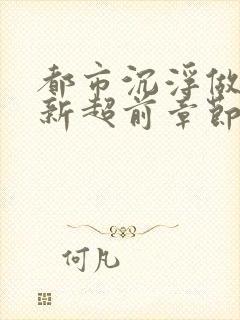 都市沉浮做
新超前章節
何凡